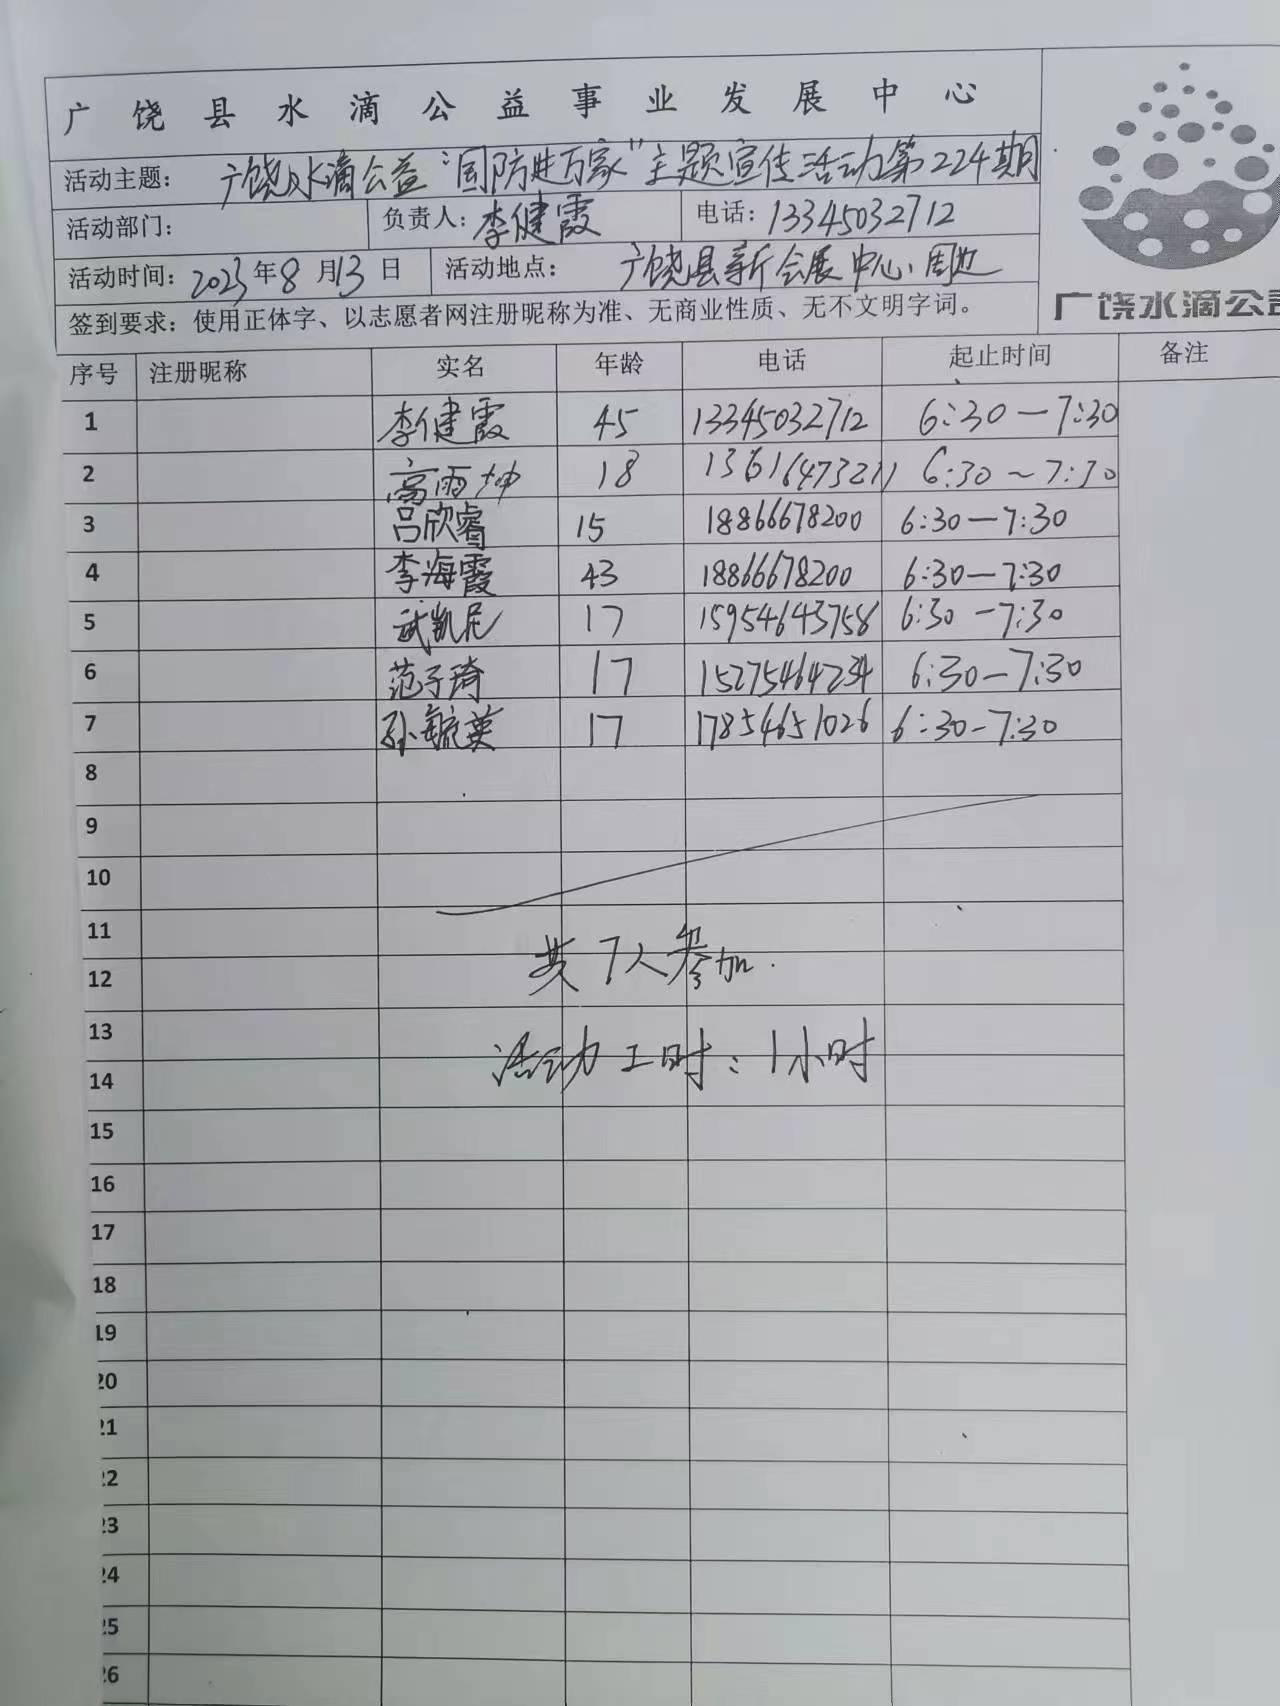 广饶县水滴公益事业发展中心
活动主题：广饶水滴公益“国防进万家”主题宣传活动第224期
活动部门： 负责人：李健霞 电话：13345032712
活动时间：2023年8月13日 活动地点：广饶县新会展中心周边
签到要求：使用正体字、以志愿者网注册昵称为准、无商业性质、无不文明字词。
广饶水滴公
序号 注册昵称 实名 年龄 电话 起止时间 备注
1 李健霞 45 13345032712 6:30—7:30
2 高雨坤 18 13616473211 6:30~7:30
3 吕欣睿 15 18866678200 6:30—7:30
4 李海霞 43 18866678200 6:30—7:30
5 武凯尼 17 15954643758 6:30—7:30
6 范子琦 17 15275464234 6:30—7:30
7 孙毓英 17 17854651026 6:30-7:30
8
9
10
11
共7人参加.
12
13
活动工时：1小时
14
15
16
17
18
19
20
21
22
23
24
25
26